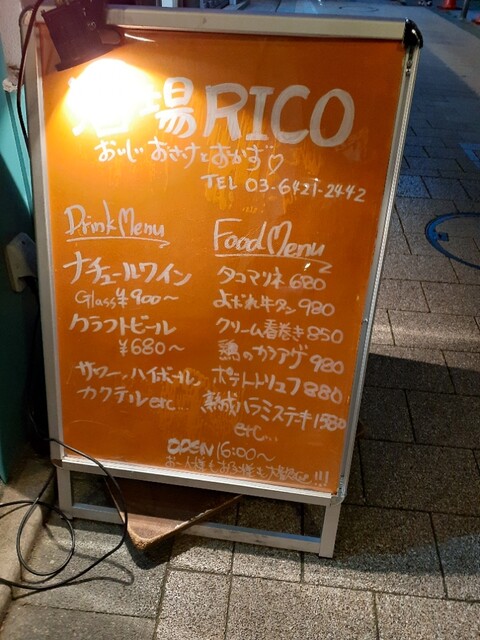 酒場 RICO
おいしいおさけとおかず♡
TEL 03-6421-2442
Drink Menu
ナチュールワイン
Glass ¥900〜
クラフトビール
¥680〜
サワー、ハイボール、
カクテル etc...
Food Menu
タコマリネ 680
よだれ牛タン 980
クリーム春巻き 850
鶏のカラアゲ 980
ポテトトリュフ 880
熟成ハラミステーキ 1580
etc...
OPEN 16:00〜
お一人様も